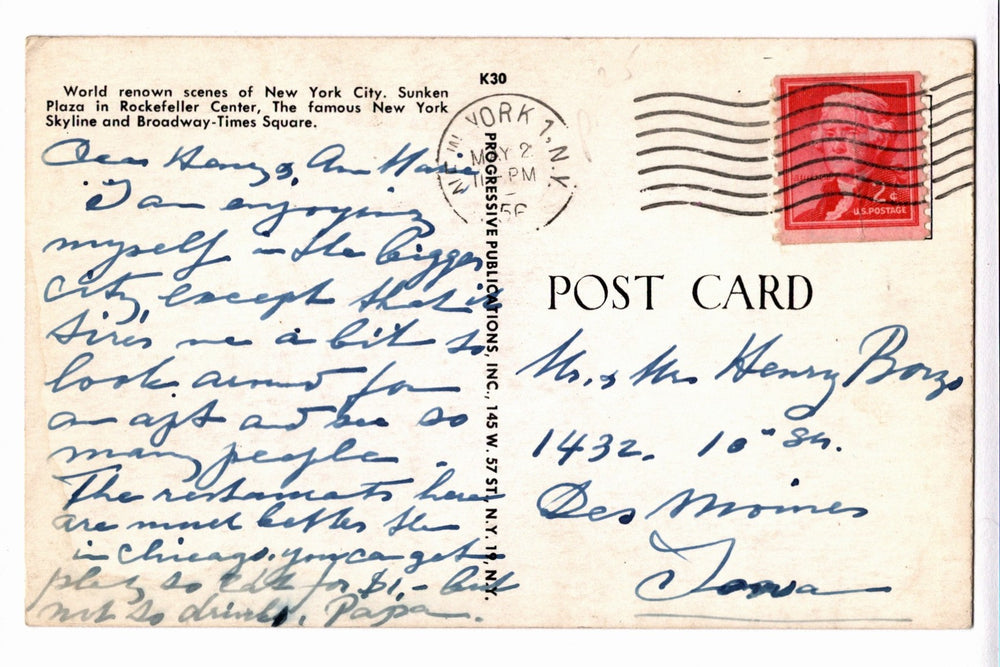 K30
World renown scenes of New York City. Sunken
Plaza in Rockefeller Center, The famous New York
Skyline and Broadway-Times Square.
NEW YORK 1, N.Y.
MAY 2
PM
56
2¢
U.S. POSTAGE
PROGRESSIVE PUBLICATIONS, INC., 145 W. 57 ST., N.Y. 19, N.Y.
POST CARD
Dear Henry & Ann Marie
I am enjoying
myself in the bigger
city, except that it
tires me a bit to
look around for
an apt and see so
many people.
The restaurants here
are much better then
in Chicago. you can get
plenty to eat for $1,- but
not to drink. Papa.
Mr. & Mrs Henry
1432. 10th St.
Des Moines
Iowa